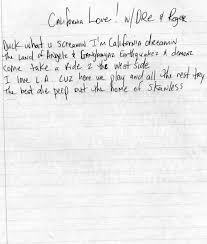 California Love! w/DRE & Roger
Duck what u screamin I'm California dreamin
the land of Angels & Gangbangaz Earthquakez & demonz
come take a ride 2 the west side
I love L.A. cuz here we play and all the rest try
the best die peep out the home of